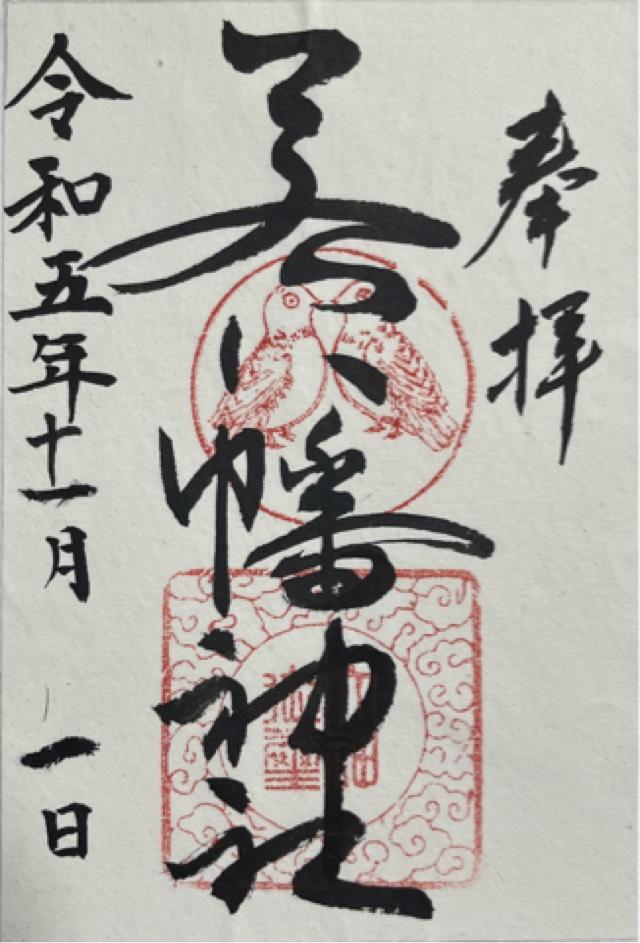 奉拝
八幡神社
令和五年十一月 一日